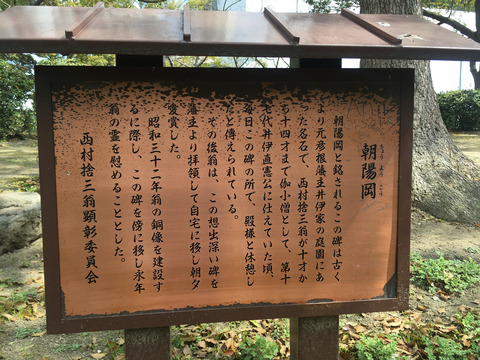 朝陽岡
ちょうようこう
朝陽岡と銘されるこの碑は古く
より元彦根藩主井伊家の庭園にあ
った名石で、西村捨三翁が十才か
ら十四才まで伽小僧として、第十
七代井伊直憲公に仕えていた頃、
毎日この碑の所で、殿様と休憩し
たと伝えられている。
その後翁は、この想出深い碑を
藩主より拝領して自宅に移し朝夕
愛賞した。
昭和三十二年翁の銅像を建設す
るに際し、この碑を傍に移し永年
翁の霊を慰めることとした。
西村捨三翁顕彰委員会